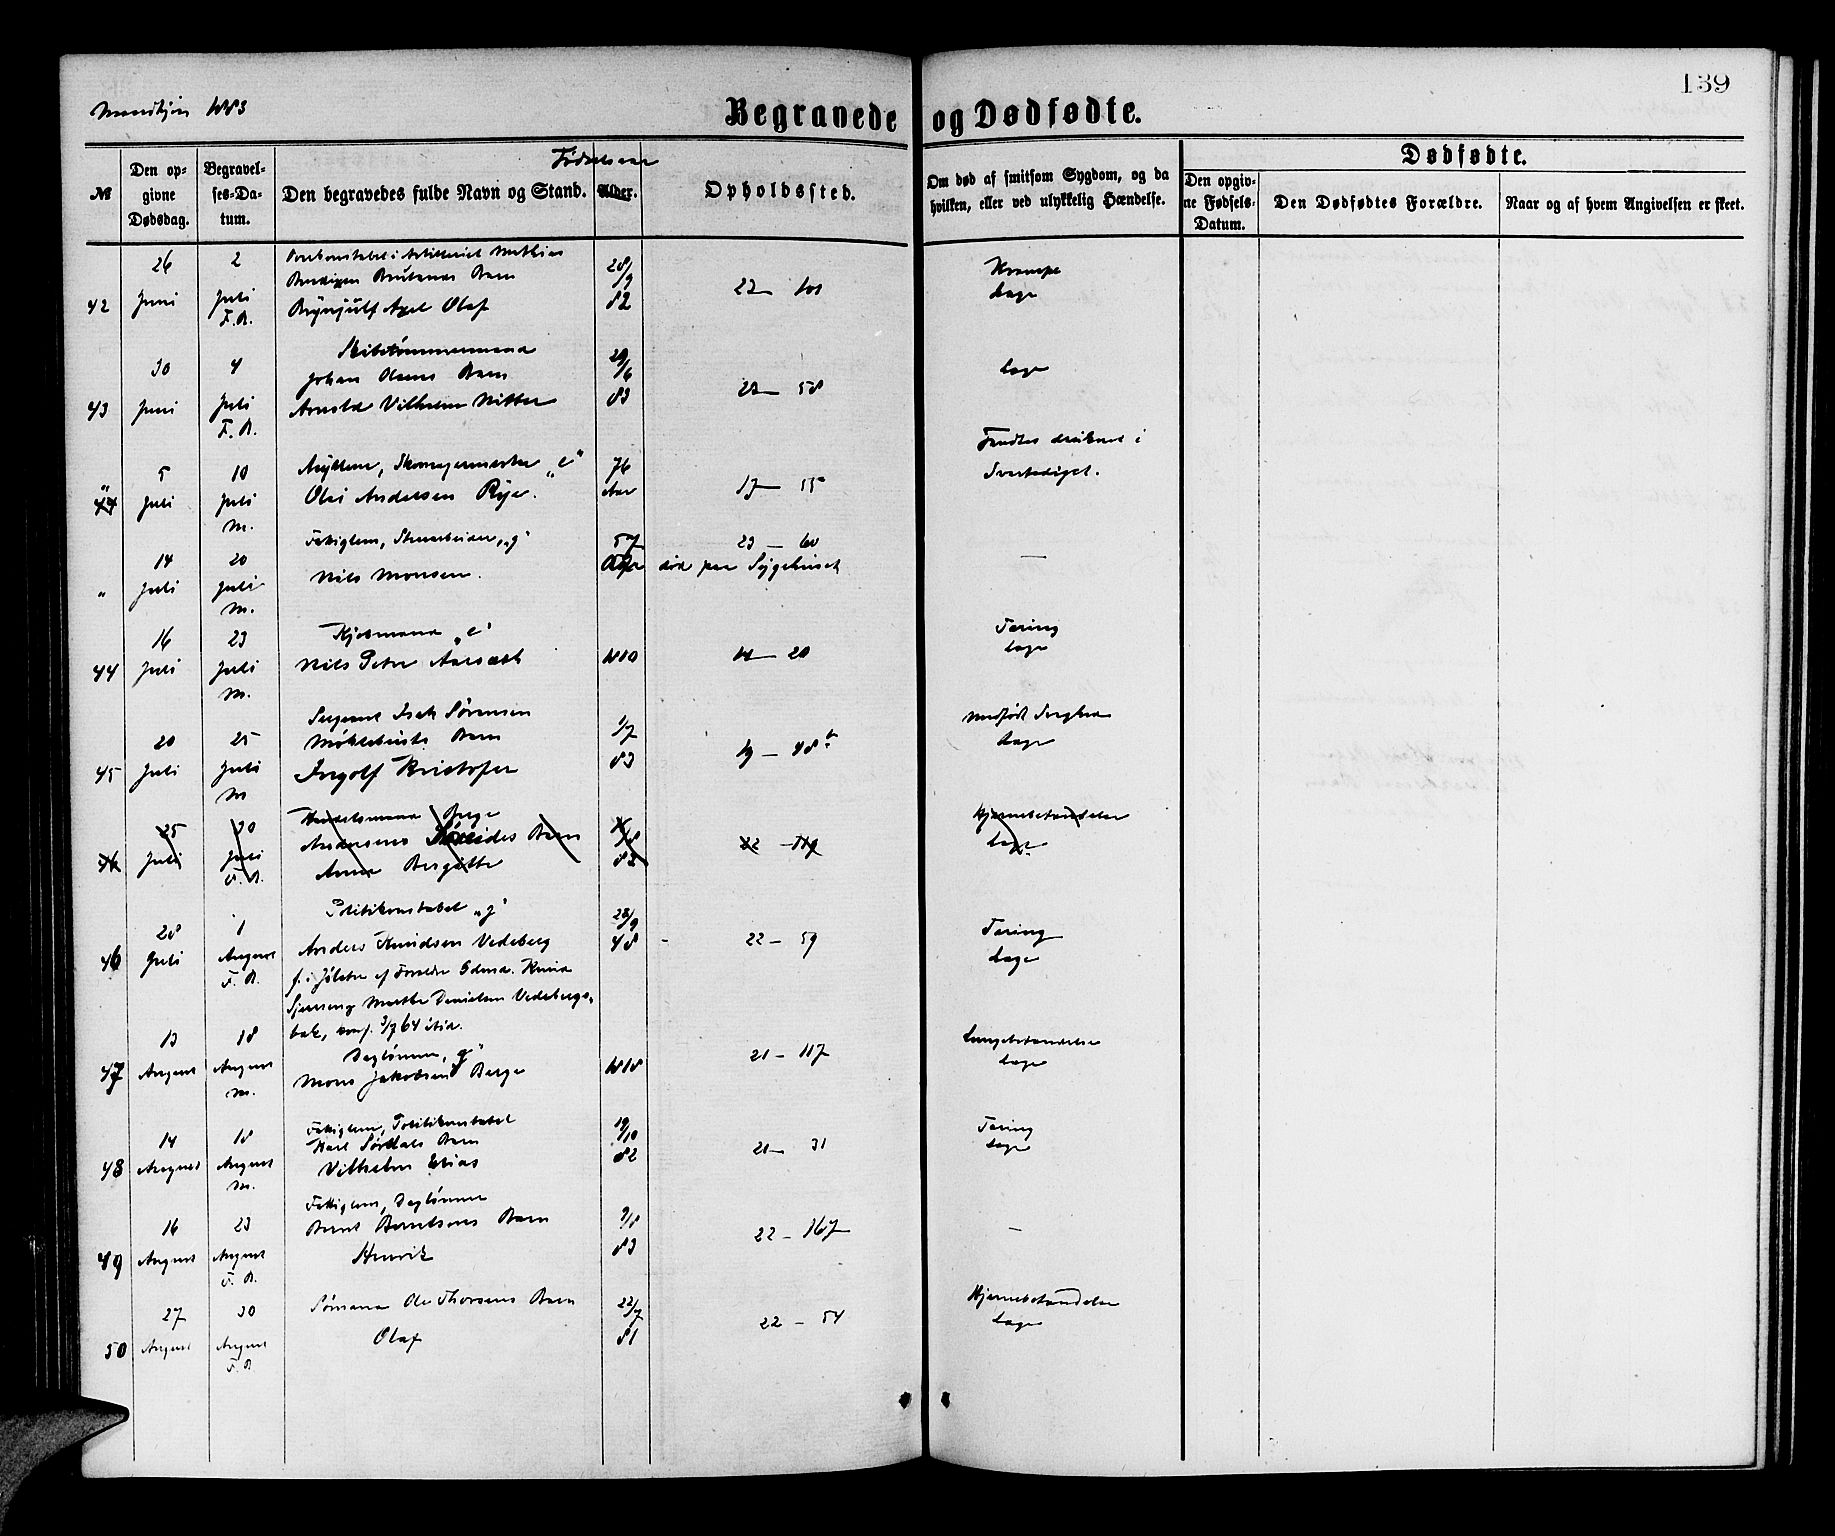 139
Mandkjøn 1883
Begravede og Dødfødte.
№
Den opgivne Dødsdag.
Begravelses-Datum.
Den begravedes fulde Navn og Stand.
Fødselsaar
Alder.
Opholdssted.
Om død af smitsom Sygdom, og da hvilken, eller ved ulykkelig Hændelse.
Dødfødte.
Den opgivne Fødsels-Datum.
Den Dødfødtes Forældre.
Naar og af hvem Angivelsen er skeet.
42
26 Juni
2 Juli F.B.
i Artilleriet Mathias
Barn
Brynjulf Axel Olaf
28/9 82
Krampe
Læge
43
30 Juni
4 Juli F.B.
Skibstømmermand
Johan Olsens Barn
Arnold Vilhelm
29/6 83
22 – 58
Læge
44
5 Juli
10 Juli M.
Skomagermester „e"
Ole Andersen Rye.
76 Aar
17 – 15
Fandtes druknet i
Svartediget.
"
14 Juli
20 Juli M.
Fattiglem, „g"
Nils Monsen.
57 Aar
23 – 60
død paa Sygehuset
—
44
16 Juli
23 Juli M.
Kjøbmand „e"
Nils Peter
1810
14 – 20
Tæring
Læge
45
20 Juli
25 Juli M
Sergeant Isak Sørensen
Møklebusts Barn
Ingolf Kristofer
1/7 83
19 – 48 b
Medfødt Svaghed
Læge
46
25 Juli
30 Juli F.B.
Handelsmand Børge
Andersens Søreides Barn
Anna Bergitte
22 – 119
Hjernebetændelse
Læge
46
28 Juli
1 August F.B.
Politikonstabel „g"
Anders Knudsen Vedeberg
f. i Jølster af Forældre Gdmd. Knud
Marthe Danielsen Vedebergs-
bak, conf. 3/7 64 ibid.
28/9 48
22 – 59
Tæring
Læge
47
13 August
18 August M.
Daglønner „g"
Mons Jakobsen Berge
1818
21 – 117
Lungebetændelse
Læge
48
14 August
18 August M.
Fattiglem, Politikonstabel
Karl Sørdals Barn
Vilhelm Elias
19/10 82
21 – 31
Tæring
Læge
49
16 August
23 August F.B.
Fattiglem, Daglønner
Bernt Berntsens Barn
Henrik
9/8 83
22 – 167
—
50
27 August
30 August F.B
Sømand Ole Thorsens Barn
Olaf
22/7 81
22 – 54
Hjernebetændelse
Læge